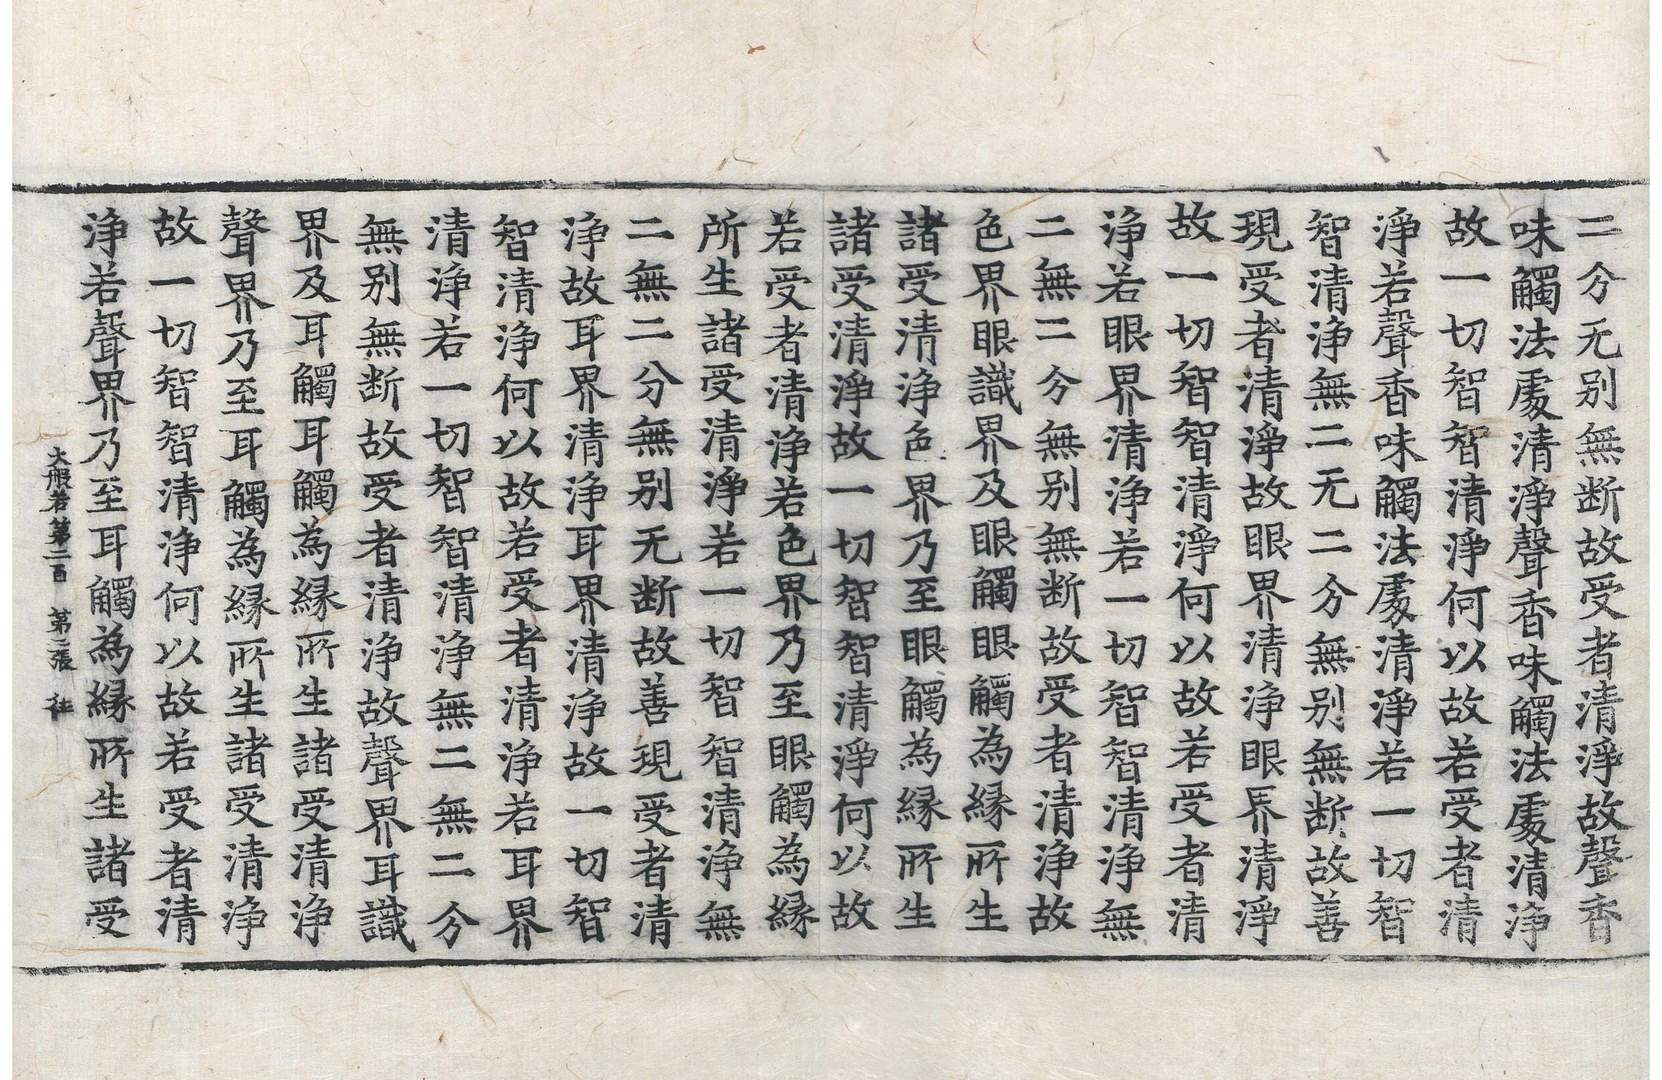 二分无别無断故受者清淨故聲香
味觸法處清淨聲香味觸法處清淨
故一切智智清淨何以故若受者清
淨若聲香味觸法處清淨若一切智
智清淨無二无二分無别無断故善
現受者清淨故眼界清淨眼界清淨
故一切智智清淨何以故若受者清
淨若眼界清淨若一切智智清淨無
二無二分無别無断故受者清淨故
色界眼識界及眼觸眼觸為縁所生
諸受清淨色界乃至眼觸為縁所生
諸受清淨故一切智智清淨何以故
若受者清淨若色界乃至眼觸為縁
所生諸受清淨若一切智智清淨無
二無二分無别无断故善現受者清
淨故耳界清淨耳界清淨故一切智
智清淨何以故若受者清淨若耳界
清淨若一切智智清淨無二無二分
無别無断故受者清淨故聲界耳識
界及耳觸耳觸為縁所生諸受清淨
聲界乃至耳觸為縁所生諸受清淨
故一切智智清淨何以故若受者清
淨若聲界乃至耳觸為縁所生諸受
大般若第二百 第二張